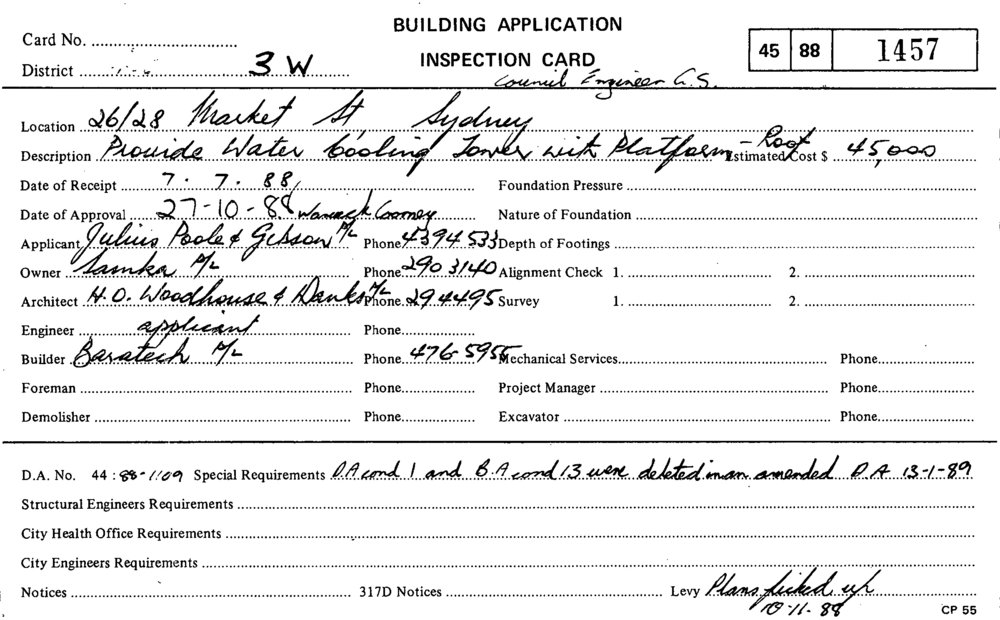 BUILDING APPLICATION
INSPECTION CARD
Council Engineer G.S.
Card No.
District 3 W
45 88 1457
Location 26/28 Market St Sydney
Description Provide Water Cooling Tower with Platform - Roof Estimated Cost $ 45,000
Date of Receipt 7. 7. 88 Foundation Pressure
Date of Approval 27-10-88 Nature of Foundation
Applicant Julius Poole & Gibson P/L Phone 4394533 Depth of Footings
Owner Samka P/L Phone 290 3140 Alignment Check 1. 2.
Architect H.O. Woodhouse & Danks P/L Phone 294495 Survey 1. 2.
Engineer applicant Phone
Builder Baratech P/L Phone 476-5955 Mechanical Services Phone
Foreman Phone Project Manager Phone
Demolisher Phone Excavator Phone
D.A. No. 44 : 88-1109 Special Requirements D.A cond 1 and B.A cond 13 were deleted in an amended D.A 13-1-89
Structural Engineers Requirements
City Health Office Requirements
City Engineers Requirements
Notices 317D Notices Levy Plans picked up
10-11-88
CP 55